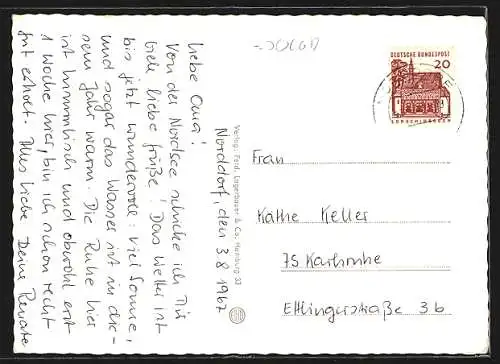 Norddorf, den 3.8.1967
Liebe Oma!
Von der Nordsee schicke ich Dir
viele liebe Grüße! Das Wetter ist
bis jetzt wundervoll: viel Sonne,
und sogar das Wasser ist in die-
sem Jahr warm. Die Ruhe hier
ist himmlisch und obwohl erst
1 Woche hier, bin ich schon recht
gut erholt. Alles Liebe Deine Renate
Verlag: Ferd. Lagerbauer & Co., Hamburg 33
DEUTSCHE BUNDESPOST
20
LORSCH/HESSEN
Frau
Käthe Keller
75 Karlsruhe
Ettlingerstraße 3b